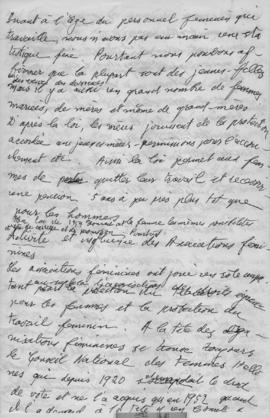 Quant à l'âge du personnel féminin qui
travaille, nous n'avons pas en main une sta
tistique fixe. Pourtant nous pouvons af-
firmer que la plupart sont des jeunes-filles
Mais il y a aussi un grand nombre de femmes
mariées, de mères et même de grand-mères
D'après la loi, les mères jouissent de la protection
accordée aux jeunes mères - permissions pour l'accou
chement etc. Aussi la loi permet aux fem
mes de quitter leur travail et recevoir
une pension 5 ans a peu près plus tôt que
pour les hommes
la femme les mêmes
Activité et influence des Associations fémi
nines
Les associations féminines ont joué un rôle impor
tant
pour les femmes et la protection du
travail féminin. A la tête des orga
nisations féminines se trouve toujours
le Conseil National des Femmes Hellè
nes qui depuis 1920 le droit
de vote et ne l'a acquis qu'en 1952 quand